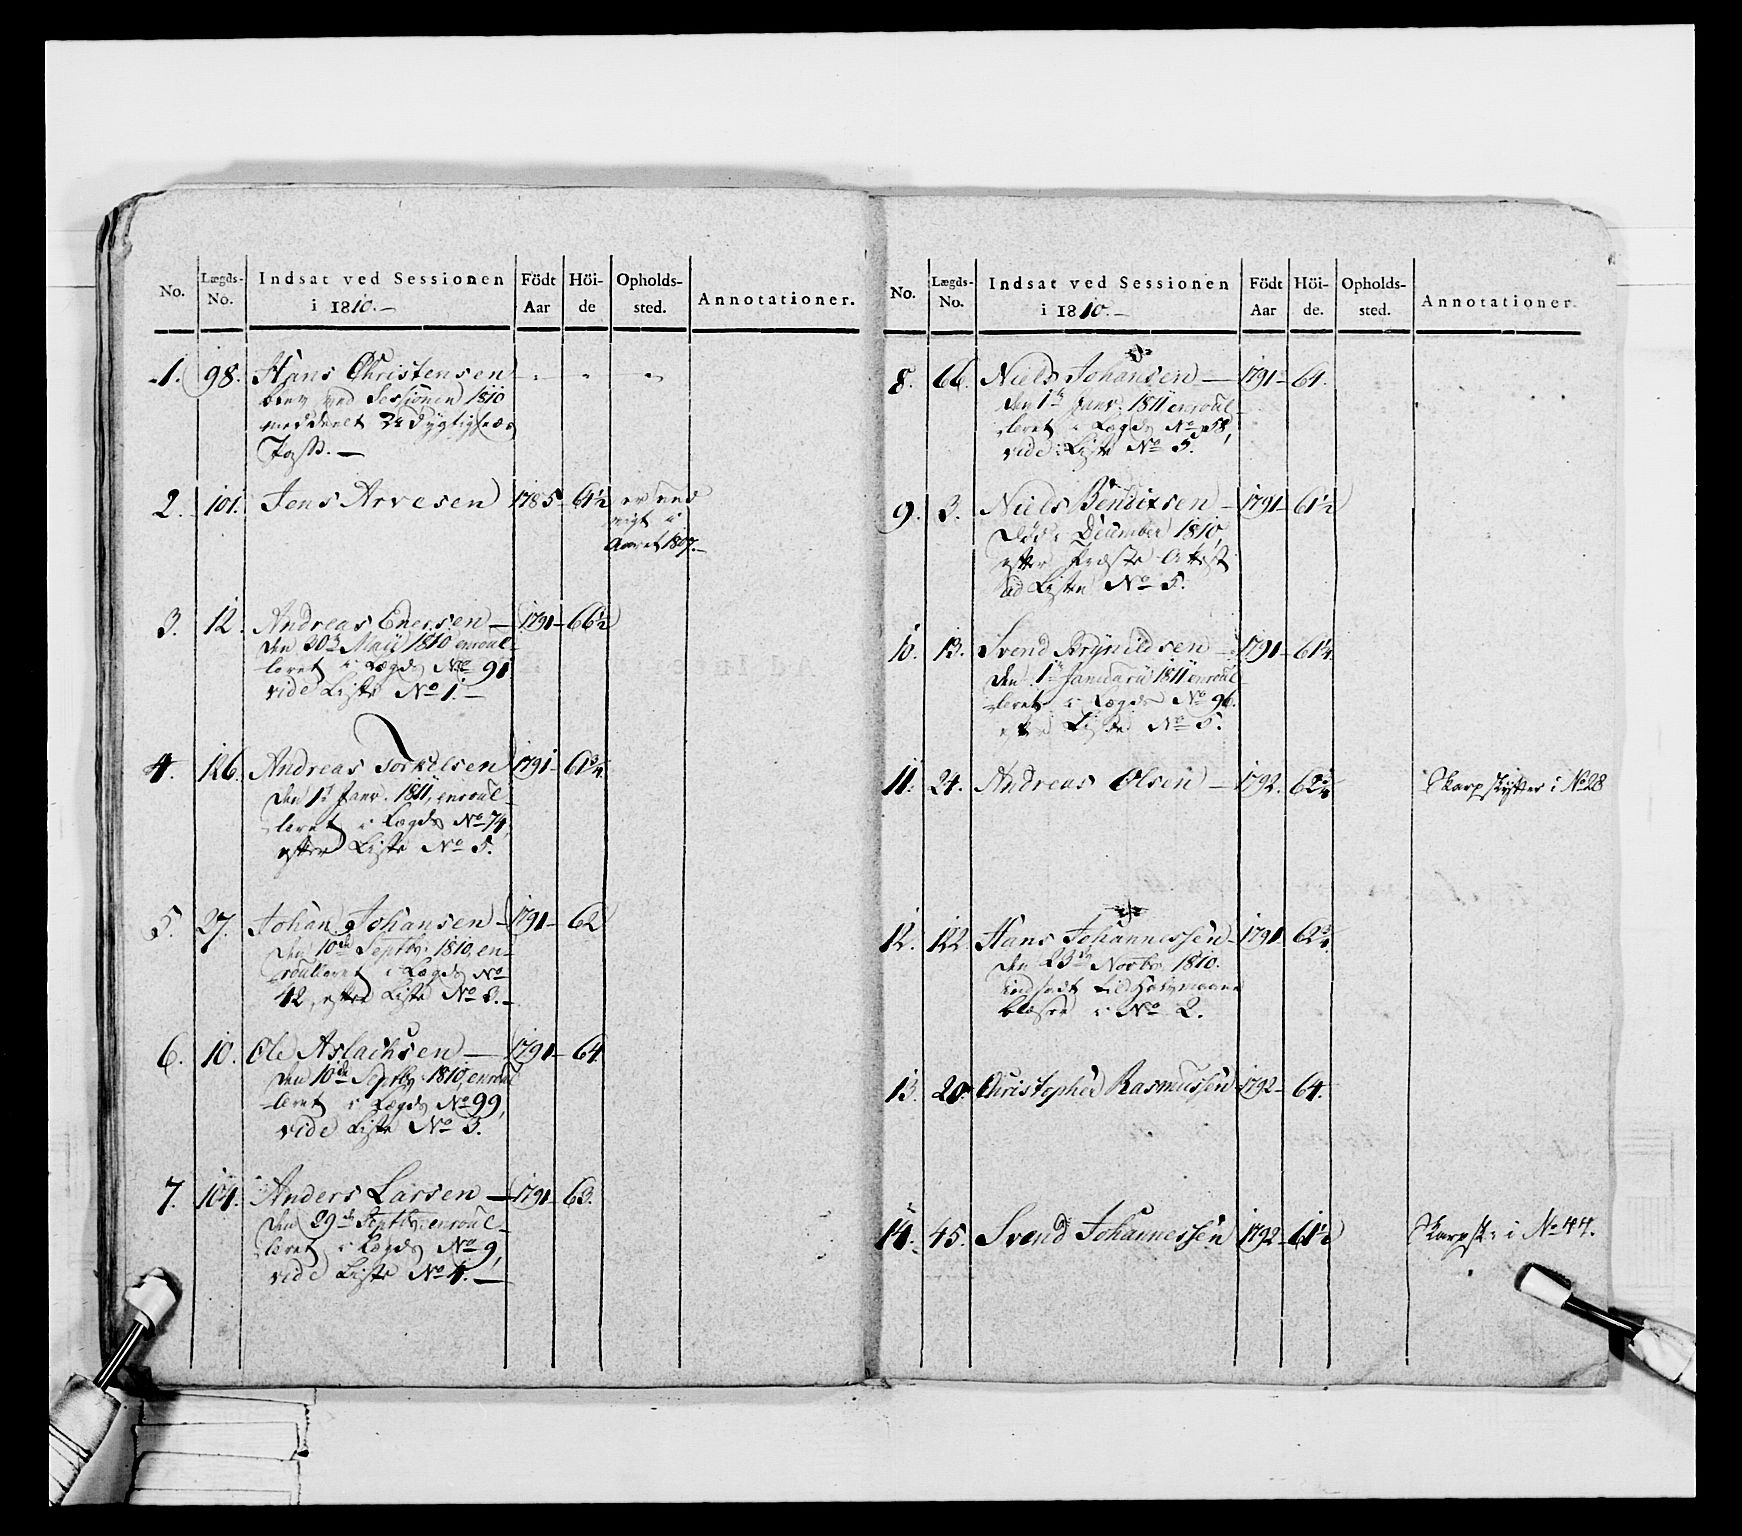 No. Lægds-No. Indsat ved Sessionen i 1810.- Födt Aar Höi-de Opholds-sted. Annotationer.
1. 98. Hans Christensen - - -
blev ved Sessionen 1810
meddeelt Udygtigheds
Pass. -
2. 101. Jens Arvesen 1785- 64½ er
i
Aaret 1807.-
3. 12. Andreas Enersen - 1791- 66½
den 30te Maii 1810 enroul-
leret i Lægds No 91
vide Liste No 1.-
4. 126. Andreas Torkelsen 1791- 61¾
den 1te Janr. 1811, enroul-
leret i Lægds No 74,
efter Liste No 5.
5. 27. Johan Johansen - 1791- 62
den 10de Septbr. 1810, en-
roulleret i Lægds No
42, efter Liste No 3.-
6. 10. Ole Aslachsen - 1791- 64
den 10de Septbr. 1810, enroul
leret i Lægds No 99,
vide Liste No 3.
7. 104. Anders Larsen - 1791- 63.
den 29de Septbr. enroul-
leret i Lægds No 9,
vide Liste No 4. -
No. Lægds-No. Indsat ved Sessionen i 1810.- Födt Aar Höi-de. Opholds-sted. Annotationer.
8. 66. Niels Johansen - 1791- 64.
den 1te Janr. 1811 enroul-
leret i Lægds No 58,
vide Liste No 5.
9. 3. Niels Bendixsen - 1791- 61½
Død i December 1810,
efter Præste Attest
ad Listen No 5.
10. 13. Svend Brynildsen - 1791- 61¼
den 1te Januarii 1811 enroul-
leret i Lægds No 96.
Liste No 5.
11. 24. Andreas Olsen - 1792. 62¾ Skarpskytter i No 28
12. 122. Hans Johannessen - 1791 62¾
den 23de Novbr. 1810.
indsadt til
blæser i No 2.
13. 20. Christopher Rasmussen 1792- 64.
14. 45. Svend Johannessen 1792- 61½ Skarpsk: i No 44.